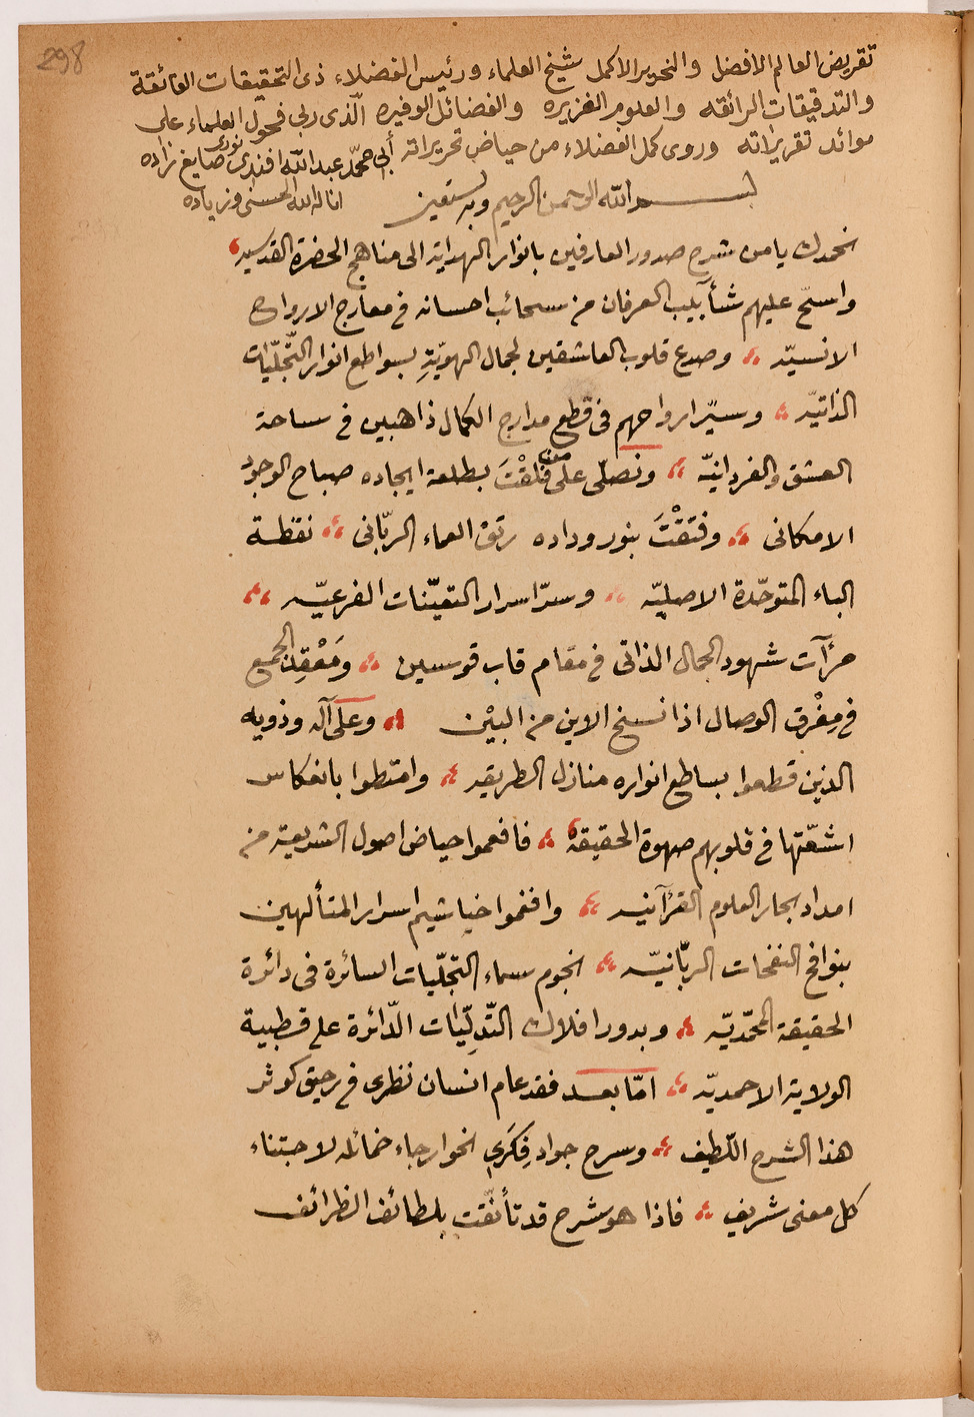 298
تقريض العالم الافضل والنحرير الاكمل شيخ العلماء ورئيس الفضلاء ذى التحقيقات الفائقة
والتدقيقات الرائقه والعلوم الغزيره والفضائل الوفيره الّذى ربى فحول العلماء على
موائد تقريراته وروى كمل الفضلاء من حياض تحريراته أبى محمّد عبد الله افندى نورى صايغ زاده
اناله الله الحسنى وزياده
بسم الله الرحمن الرحيم وبه نستعين
نحمدك يا من شرح صدور العارفين بانوار الهداية الى مناهج الحضرة القدسيه
واسحّ عليهم شأبيب العرفان من سحائب احسانه فى معارج الارواح
الانسيّه وصدع قلوب العاشقين لجمال الهويّةِ بسواطع انوار التّجلّيات
الذاتيّه وسيّر ارواحهم فى قطع مدارج الكمال ذاهبين فى ساحة
العشق والفردانيّه ونصلّى على من فلقْتَ بطلعة ايجاده صباح الوجود
الامكانى وفتَقْتَ بنور وداده رتق العماء الربّانى نقطة
الباء المتوحّدة الاصليّه وسرّ اسرار التعيّنات الفرعيّه
مرآت شهود الجمال الذاتى فى مقام قاب قوسين ومَعْقِد الجميع
فى مِفْرق الوصال اذا نسخ الاين من البيْن وعلى آله وذويه
الذين قطعوا بساطع انواره منازل الطريقه وامتطوا بانعكاس
اشعّتها فى قلوبهم صهوة الحقيقة فافعموا حياض اصول الشريعة من
امداد بحار العلوم القرآنيه وافغموا خياشيم اسرار المتألهين
بنوافح النفحات الربّانيّه نجوم سماء التجلّيات السائرة فى دائرة
الحقيقة المحمّديّه وبدور افلاك التّدلّيات الدّائرة على قطبية
الولاية الاحمديّه امّا بعد فقد عام انسان نظرى فى رحيق كوثر
هذا الشرح اللّطيف وسرح جواد فِكَرى نحو ارجاء خمائله لاجتناء
كل معنى شريف فاذا هو شرح قد تأنّقت بلطائف الظرائف